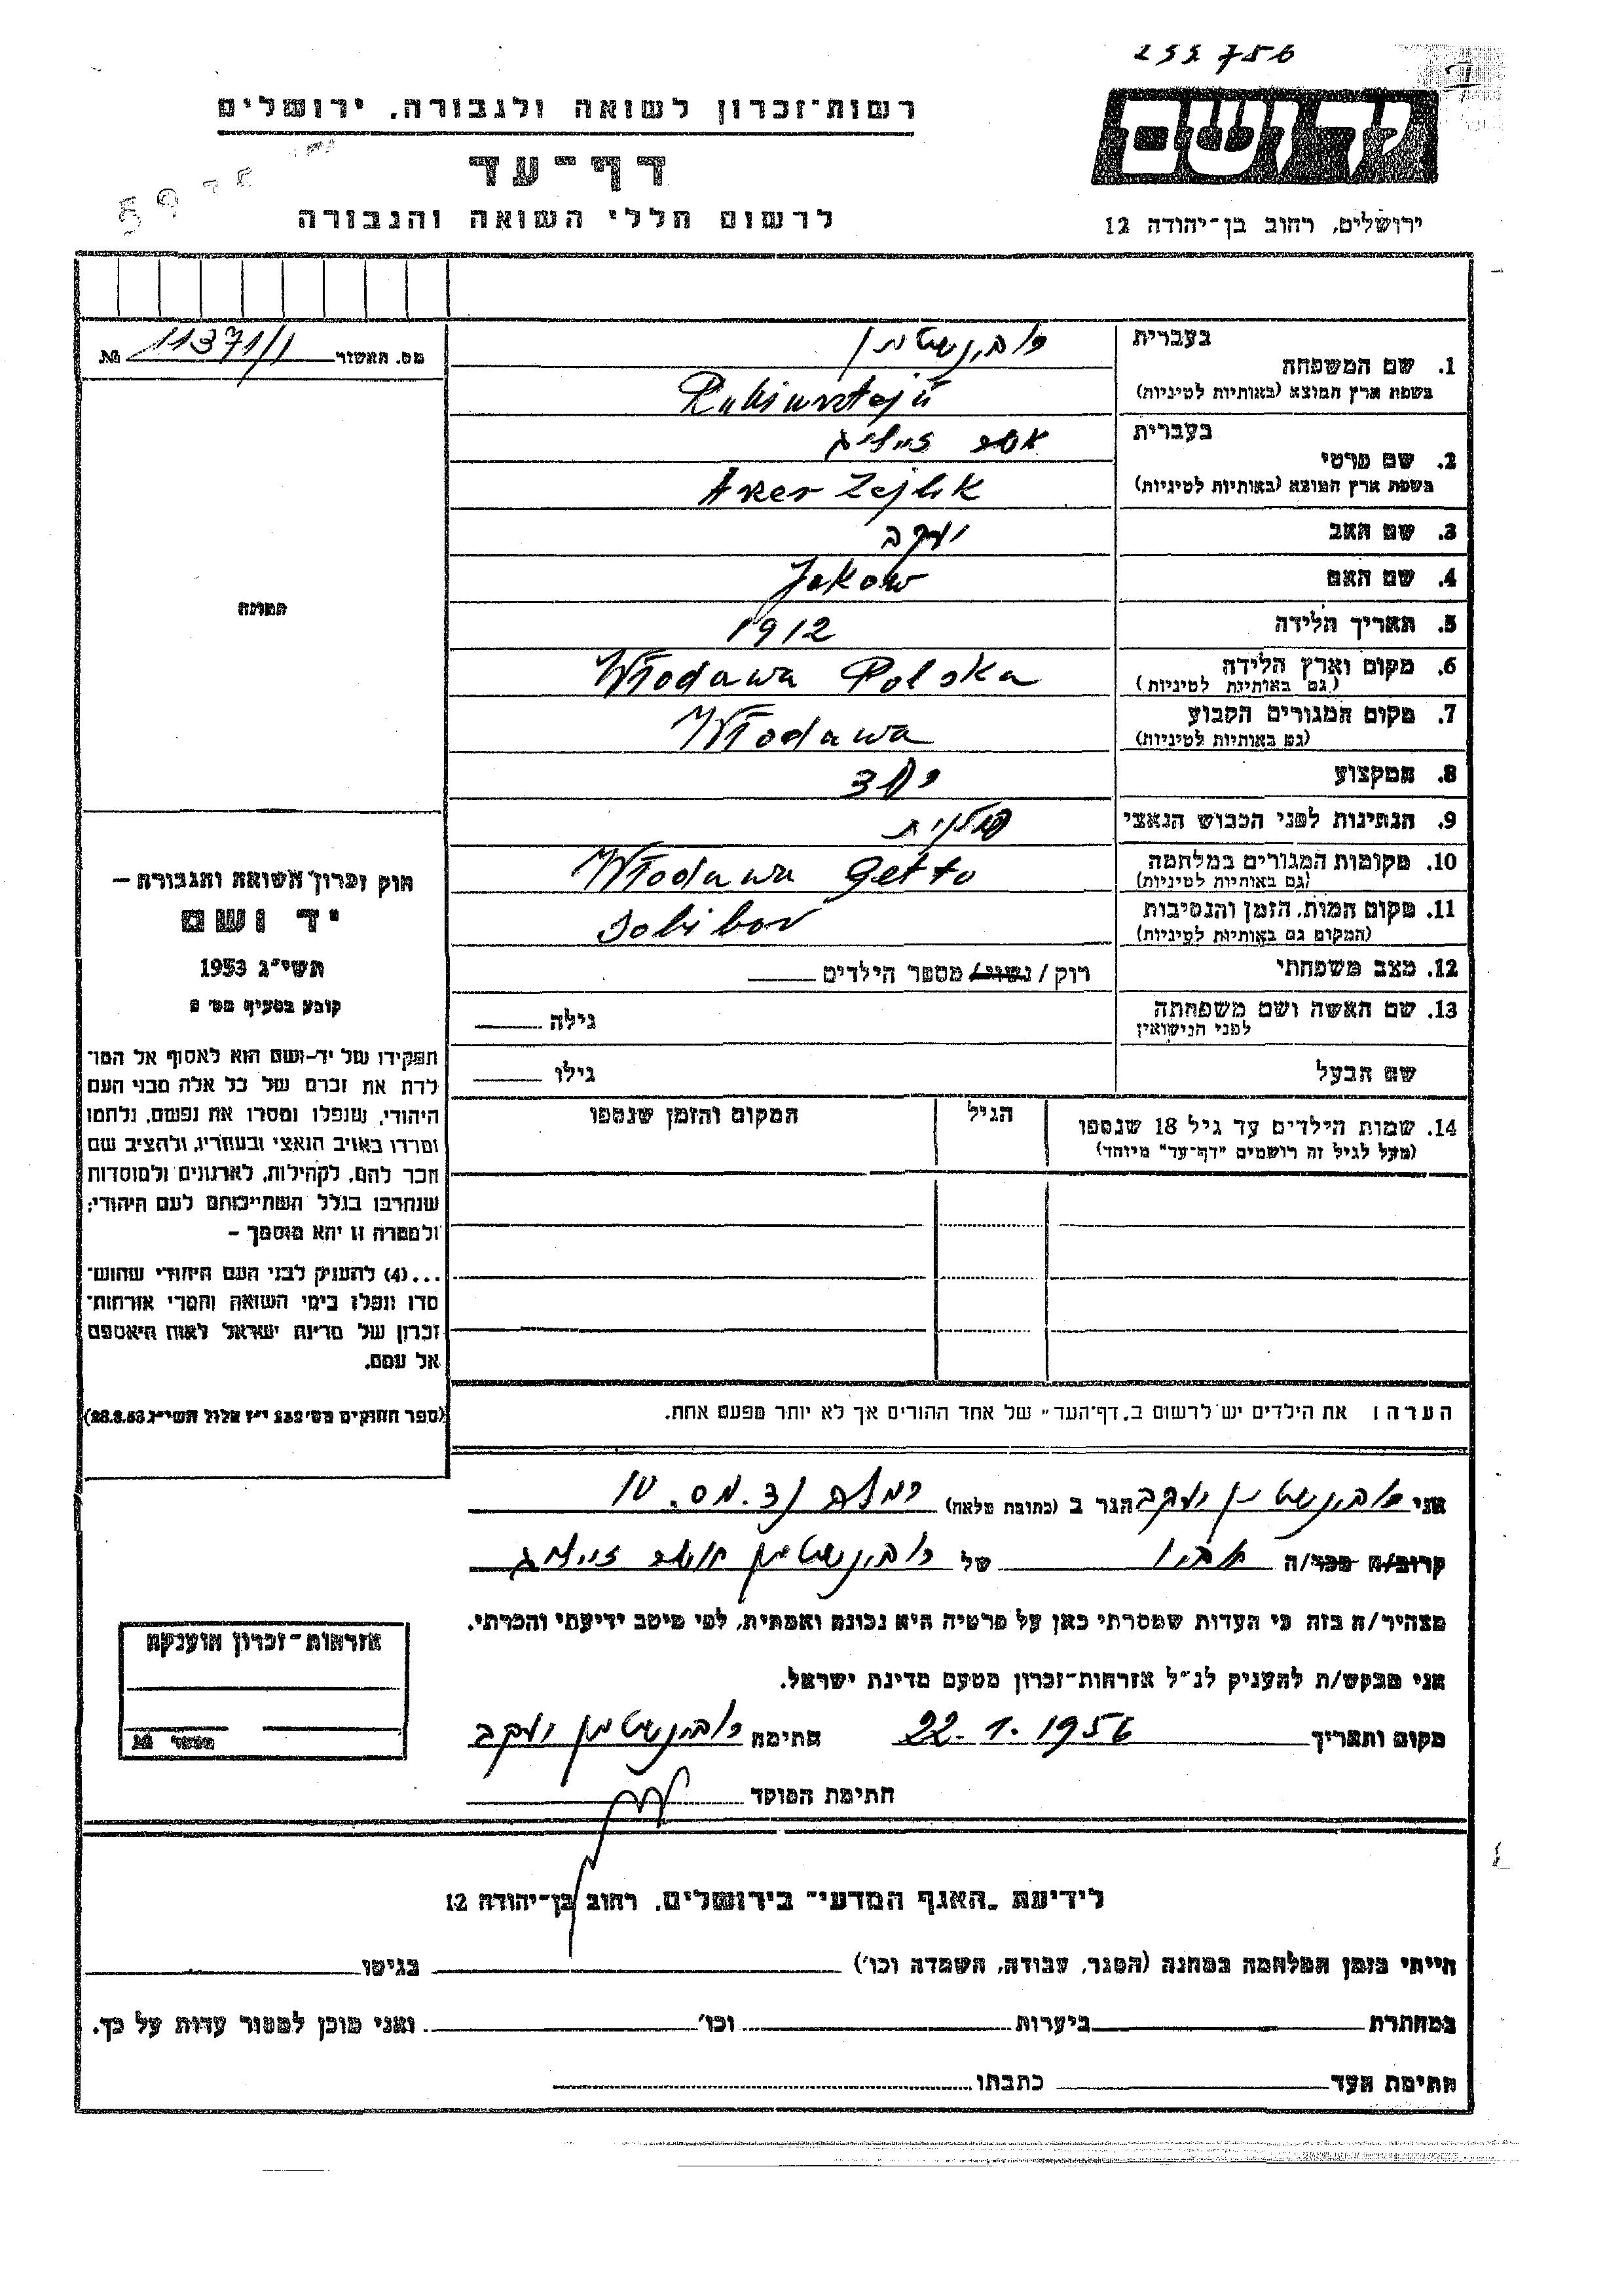 255756
רשות־זכרון לשואה ולגבורה, ירושלים
יד ושם
דף־עד
לרשום חללי השואה והגבורה
ירושלים, רחוב בן־יהודה 12
מס. האשזר 11371/1 №
1. שם המשפחה
בעברית
רובינשטיין
בשפת ארץ המוצא (באותיות לטיניות)
Rubinsztejn
2. שם פרטי
בעברית
אשר זייליג
בשפת ארץ המוצא (באותיות לטיניות)
Aszer Zejlik
3. שם האב יעקב
4. שם האם Jakow
5. תאריך הלידה 1912
6. מקום וארץ הלידה Włodawa Polska
(גם באותיות לטיניות)
7. מקום המגורים הקבוע Włodawa
(גם באותיות לטיניות)
8. המקצוע
9. הנתינות לפני הכבוש הנאצי פולנית
10. מקומות המגורים במלחמה Włodawa Getto
(גם באותיות לטיניות)
11. מקום המות, הזמן והנסיבות Sobibor
(המקום גם באותיות לטיניות)
12. מצב משפחתי רוק / נשוי / מספר הילדים
13. שם האשה ושם משפחתה
לפני הנישואין
גילה
שם הבעל גילו
14. שמות הילדים עד גיל 18 שנספו
(מעל לגיל זה רושמים "דף־עד" מיוחד)
הגיל
המקום והזמן שנספו
הערה: את הילדים יש לרשום ב"דף־העד" של אחד ההורים אך לא יותר מפעם אחת.
התמונה
חוק זכרון השואה והגבורה –
יד ושם
תשי"ג 1953
קובע בסעיף מס' 2
תפקידו של יד-ושם הוא לאסוף אל המו־
לדת את זכרם של כל אלה מבני העם
היהודי, שנפלו ומסרו את נפשם, נלחמו
ומרדו באויב הנאצי ובעוזריו, ולהציב שם
וזכר להם, לקהילות, לארגונים ולמוסדות
שנחרבו בגלל השתייכותם לעם היהודי;
ולמטרה זו יהא מוסמך –
...(4) להעניק לבני העם היהודי שהוש־
מדו ונפלו בימי השואה והמרי אזרחות־
זכרון של מדינת ישראל לאות היאספם
אל עמם.
(ספר החוקים מס' 132 י"ז אלול תשי"ג 28.8.53)
אני רובינשטיין יעקב הגר ב (כתובת מלאה) רמלה
קרוב/ה מכר/ה אביו של רובינשטיין אשר זייליג
מצהיר/ה בזה כי העדות שמסרתי כאן על פרטיה היא נכונה ואמתית, לפי מיטב ידיעתי והכרתי.
אני מבקש/ת להעניק לנ"ל אזרחות־זכרון מטעם מדינת ישראל.
מקום ותאריך 22.1.1956 חתימה רובינשטיין יעקב
חתימת הפוקד
אזרחות־זכרון הוענקה
מספר №
לידיעת "האגף המדעי" בירושלים, רחוב בן־יהודה 12
הייתי בזמן המלחמה במחנה (הסגר, עבודה, השמדה וכו') בגיטו
במחתרת ביערות וכו' ואני מוכן למסור עדות על כך.
חתימת העד כתבתו